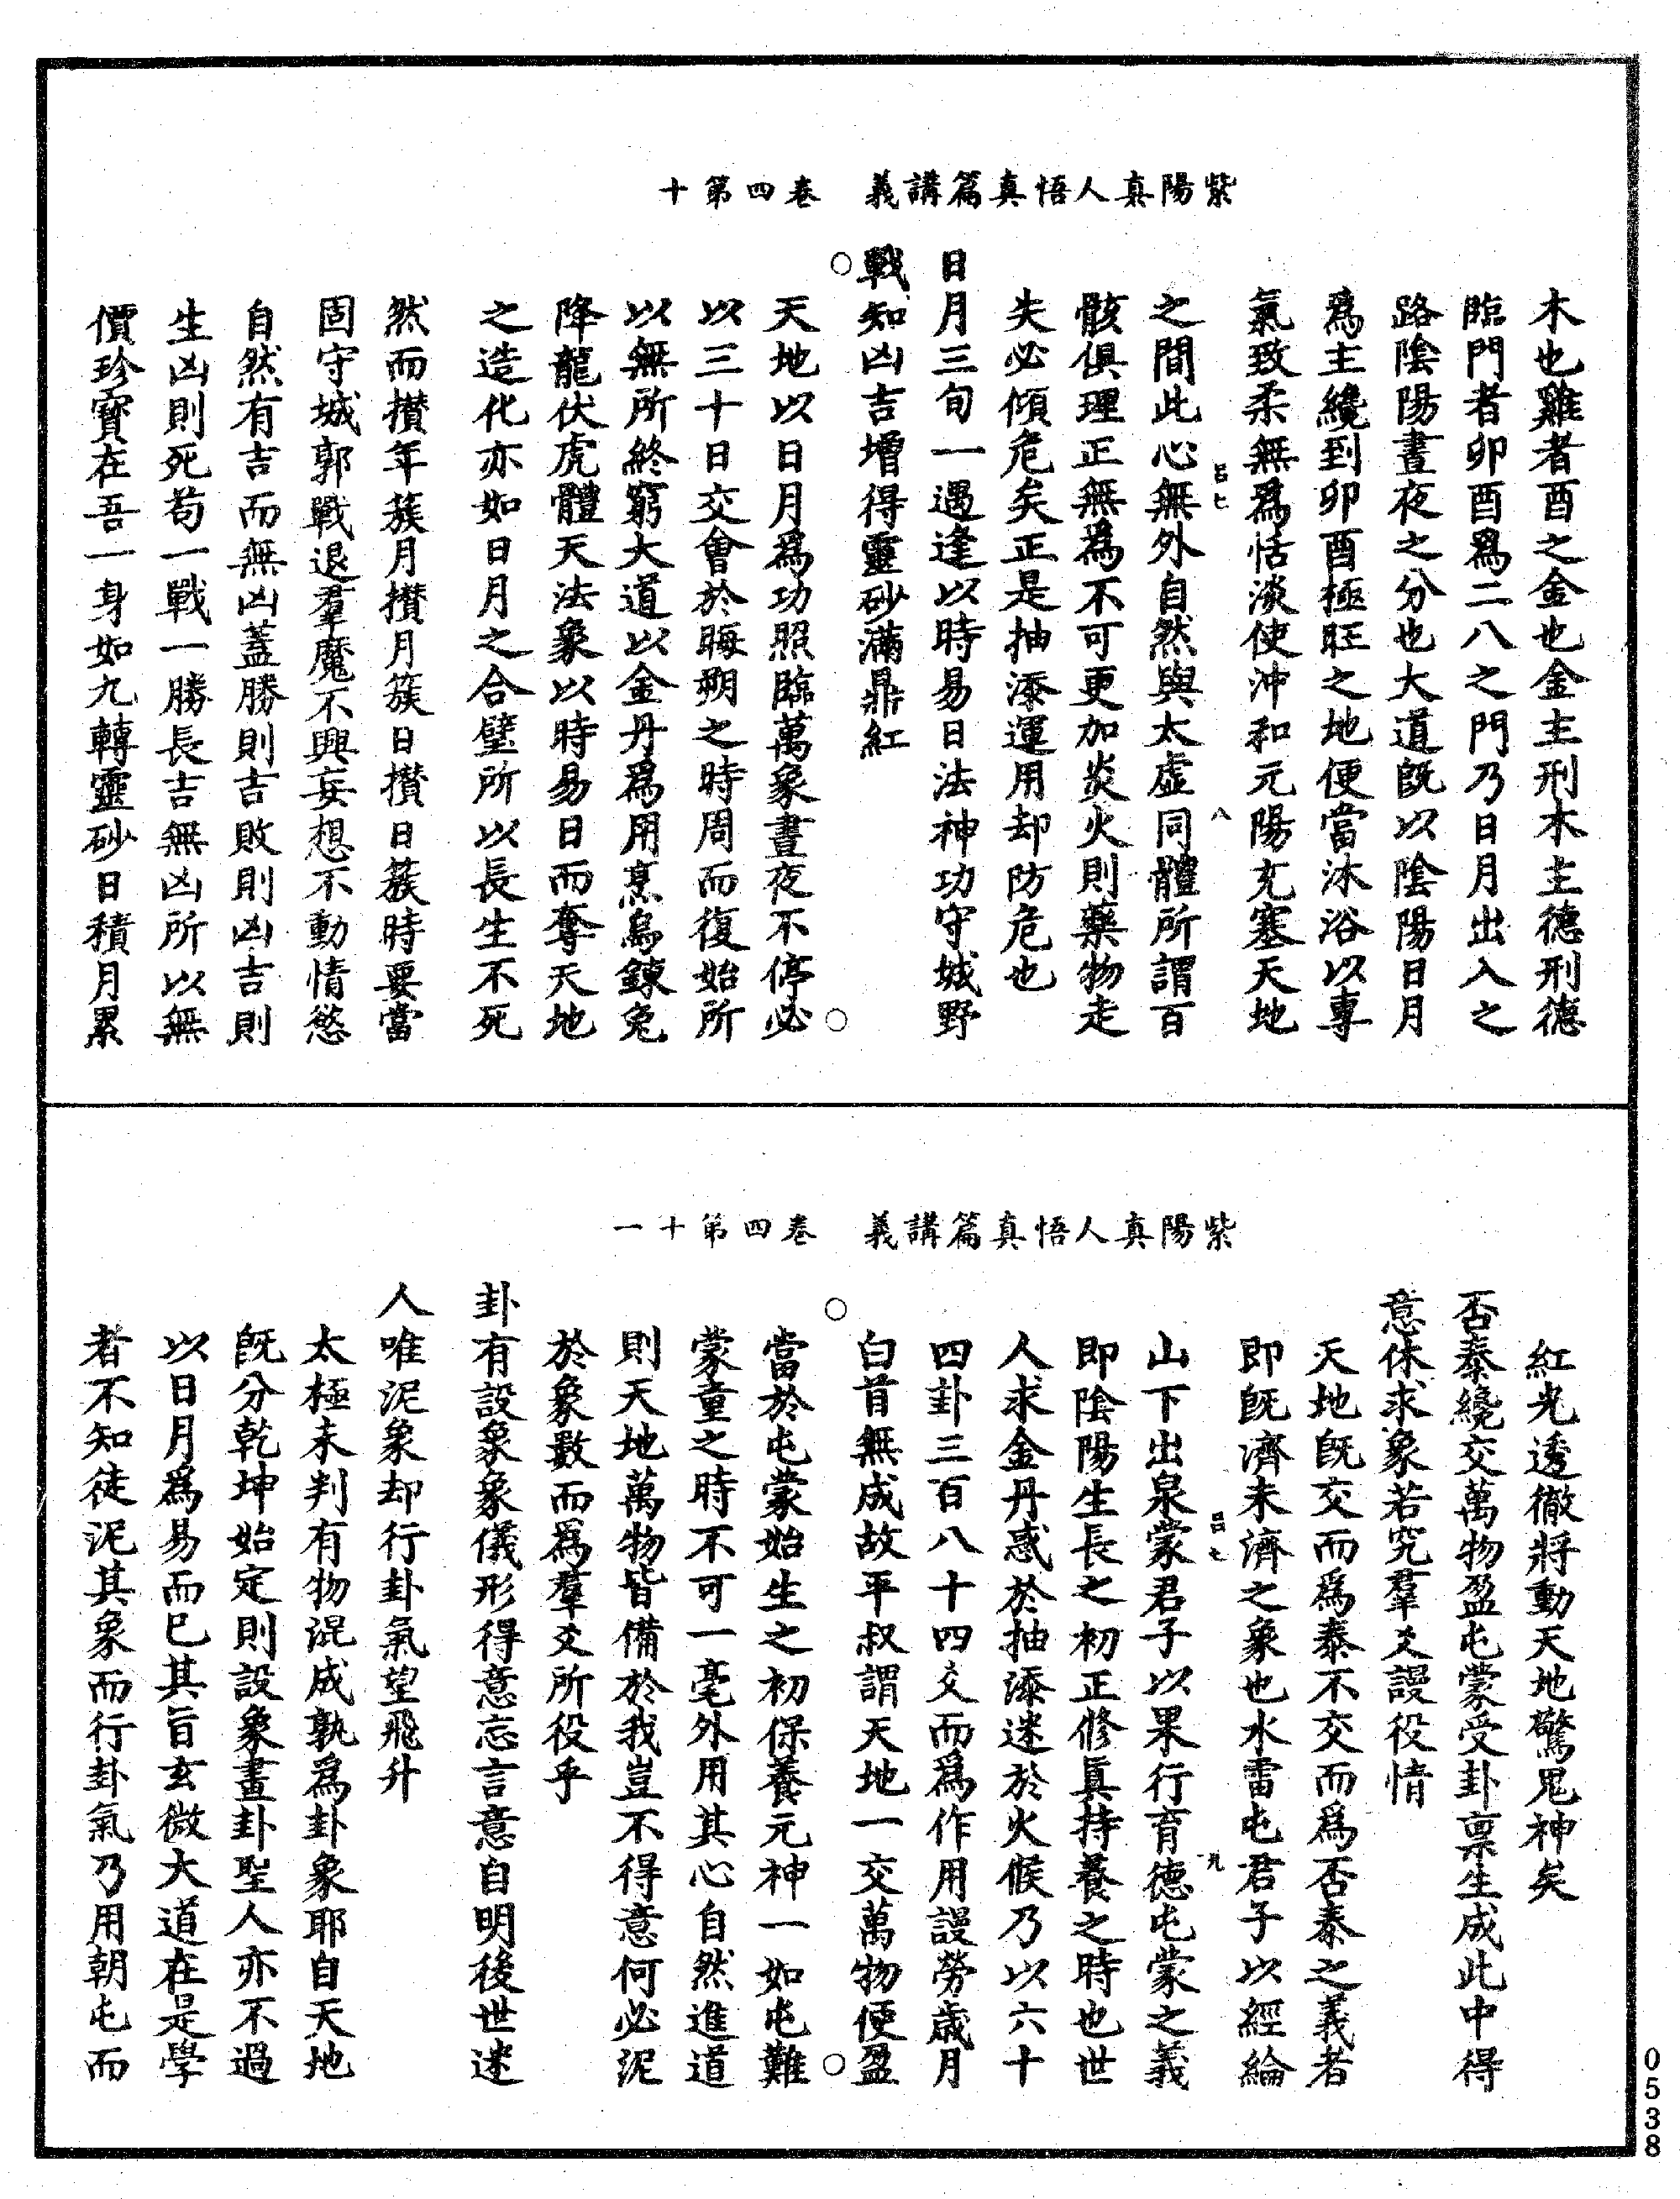 紫陽真人悟真篇講義　卷四第十
木也雞者酉之金也金主刑木主德刑德
臨門者卯酉爲二八之門乃日月出入之
路陰陽晝夜之分也大道旣以陰陽日月
爲主纔到卯酉極旺之地便當沐浴以專
氣致柔無爲恬淡使沖和元陽充塞天地
八
之間此心無外自然與太虛同體所謂百
骸俱理正無爲不可更加炎火則藥物走
失必傾危矣正是抽添運用却防危也
日月三旬一遇逢以時易日法神功守城野
戰知凶吉增得靈砂滿鼎紅
天地以日月爲功照臨萬象晝夜不停必
以三十日交會於晦朔之時周而復始所
以無所終窮大道以金丹爲用烹烏鍊兔
降龍伏虎體天法象以時易日而奪天地
之造化亦如日月之合璧所以長生不死
然而攅年簇月攅月簇日攅日簇時要當
固守城郭戰退羣魔不興妄想不動情慾
自然有吉而無凶蓋勝則吉敗則凶吉則
生凶則死苟一戰一勝長吉無凶所以無
價珍寶在吾一身如九轉靈砂日積月累
紫陽真人悟真篇講義　卷四第十一
紅光透徹將動天地驚鬼神矣
否泰纔交萬物盈屯蒙受卦稟生成此中得
意休求象若究羣爻謾役情
天地旣交而爲泰不交而爲否泰之義者
即旣濟未濟之象也水雷屯君子以經綸
九
山下出泉蒙君子以果行育德屯蒙之義
即陰陽生長之初正修眞持養之時也世
人求金丹惑於抽添迷於火候乃以六十
四卦三百八十四爻而爲作用謾勞歲月
白首無成故平叔謂天地一交萬物便盈
當於屯蒙始生之初保養元神一如屯難
蒙童之時不可一毫外用其心自然進道
則天地萬物皆備於我豈不得意何必泥
於象數而爲羣爻所役乎
卦有設象象儀形得意忘言意自明後世迷
人唯泥象却行卦氣望飛升
太極未判有物混成孰爲卦象耶自天地
旣分乾坤始定則設象畫卦聖人亦不過
以日月爲易而巳其旨玄微大道在是學
者不知徒泥其象而行卦氣乃用朝屯而
0538